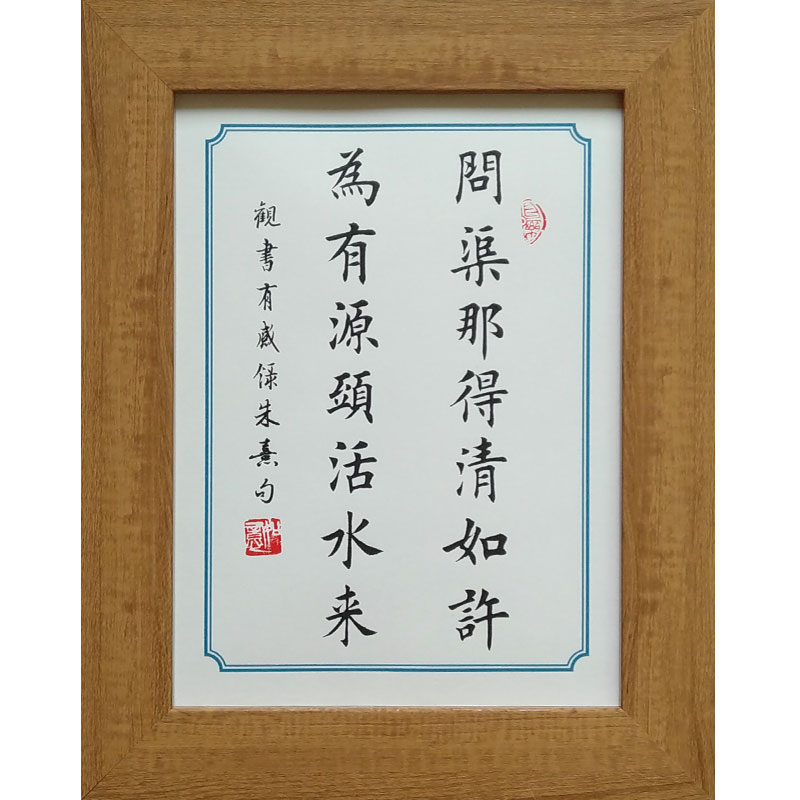 問渠那得清如許
為有源頭活水来
観書有感録朱熹句